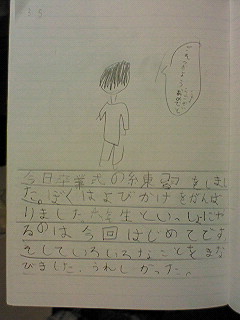 今日卒業式の練習をしまし
た。ぼくはよびかけをがんば
りました。六年生といっしょにや
るのは今回はじめてです
そしていろいろなことをまな
びました。うれしかった。